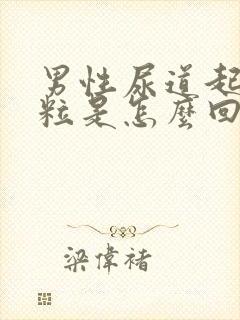 男性尿道起
粒是怎麼回
梁偉褚